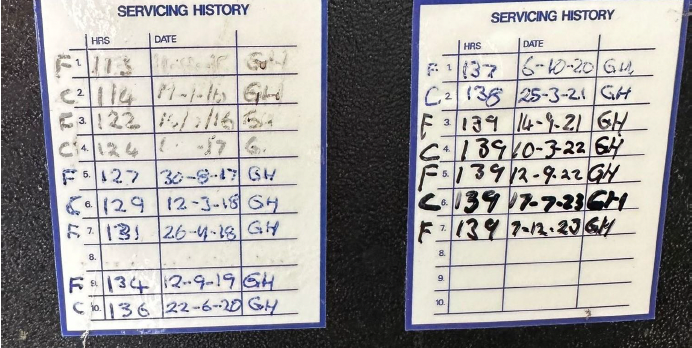 SERVICING HISTORY
HRS DATE
F 1. 113 GH
C 2. 114 GH
F 3. 122
C 4. 124 G.
F 5. 127 30-8-17 GH
C 6. 129 12-3-18 GH
F 7. 131 GH
8.
F 9. 134 12-9-19 GH
C 10. 136 22-6-20 GH
SERVICING HISTORY
HRS DATE
F 1. 137 6-10-20 GH
C 2. 138 25-3-21 GH
F 3. 139 14-9-21 GH
C 4. 139 10-3-22 GH
F 5. 139 12-9-22 GH
C 6. 139 17-7-23 GH
F 7. 139 7-12-23 GH
8.
9.
10.